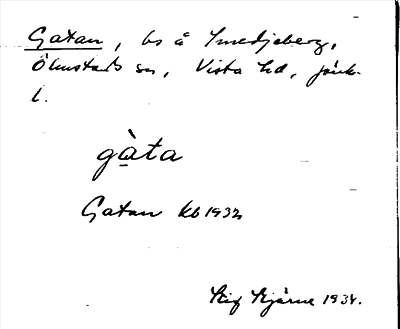 Gatan, bs å Smedjeberg,
Ölmstads sn, Vista hd, Jönk.
l.
gàta
Gatan kb 1932
Stig Bjärne 1934.